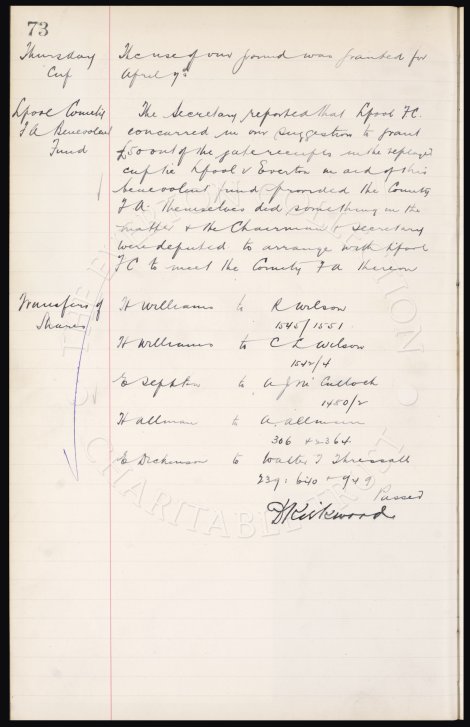 73
Thursday
Cup
The use of our ground was granted for
April 7th
Lpool County
FA Benevolent
Fund
The Secretary reported that Lpool FC.
concurred in our suggestion to grant
£50 out of the gate receipts in the replayed
cup tie Lpool v Everton in aid of this
benevolent fund provided the County
FA. themselves did something in the
matter & the Chairman & Secretary
were deputed to arrange with Lpool
FC to meet the County FA thereon
Transfers of
Shares
H Williams to R Wilson
1545/1551
H Williams to C L Wilson
1542/4
E Sephton to A J McCulloch
1450/2
H Allman to A. Allman
306 & 2364
E Dickinson to Walter T Thressall
239: 640 & 949
Passed
D Kirkwood
CHARITABLE